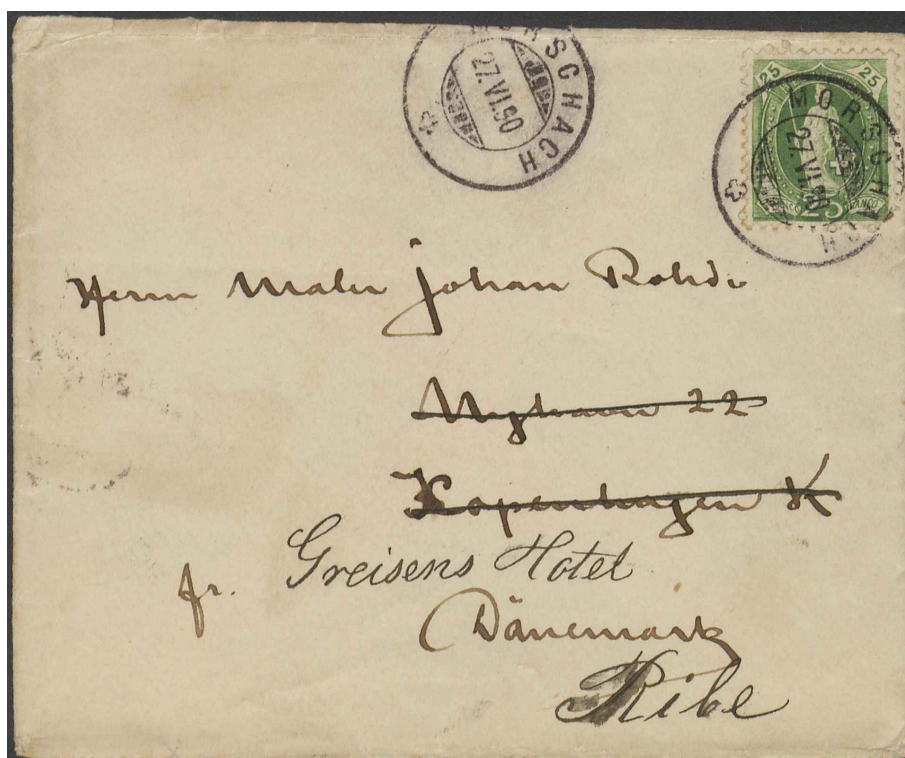 MORSCHACH
27.VI.90
25 25
MORSCHACH
27.VI.90
FRANCO
25
Herrn Maler Johan Rohde
Nyhavn 22
Kopenhagen K
fr. Greisens Hotel
Dänemark
Ribe